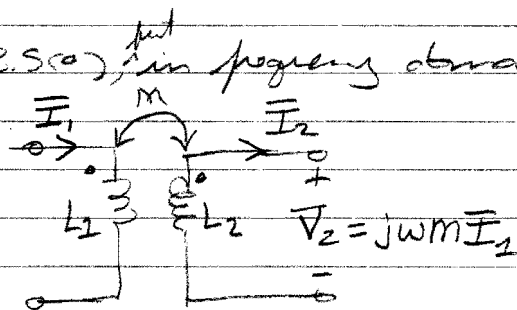 2.5(a), put in frequency doma
M
Ī₁ Ī₂
+
L₁ L₂ V̄₂ = jωm Ī₁
-